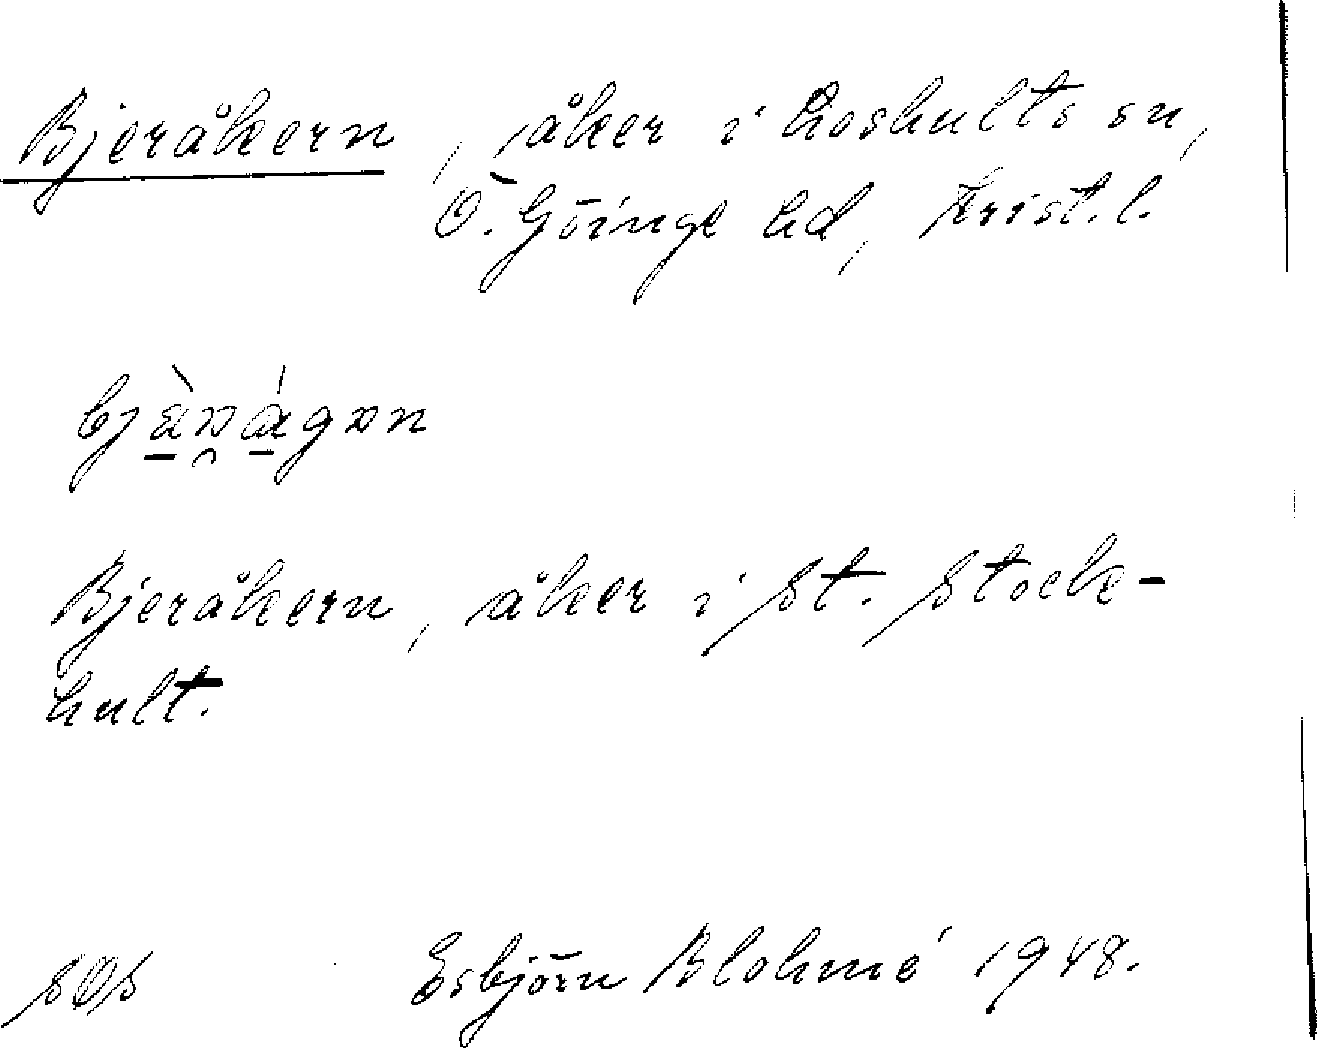 Bjeråkern, åker i Loshults sn,
Ö. Göinge hd, Krist. l.
Bjeråkern, åker i St. Stock-
hult.
SOS Esbjörn Blohmé 1948.